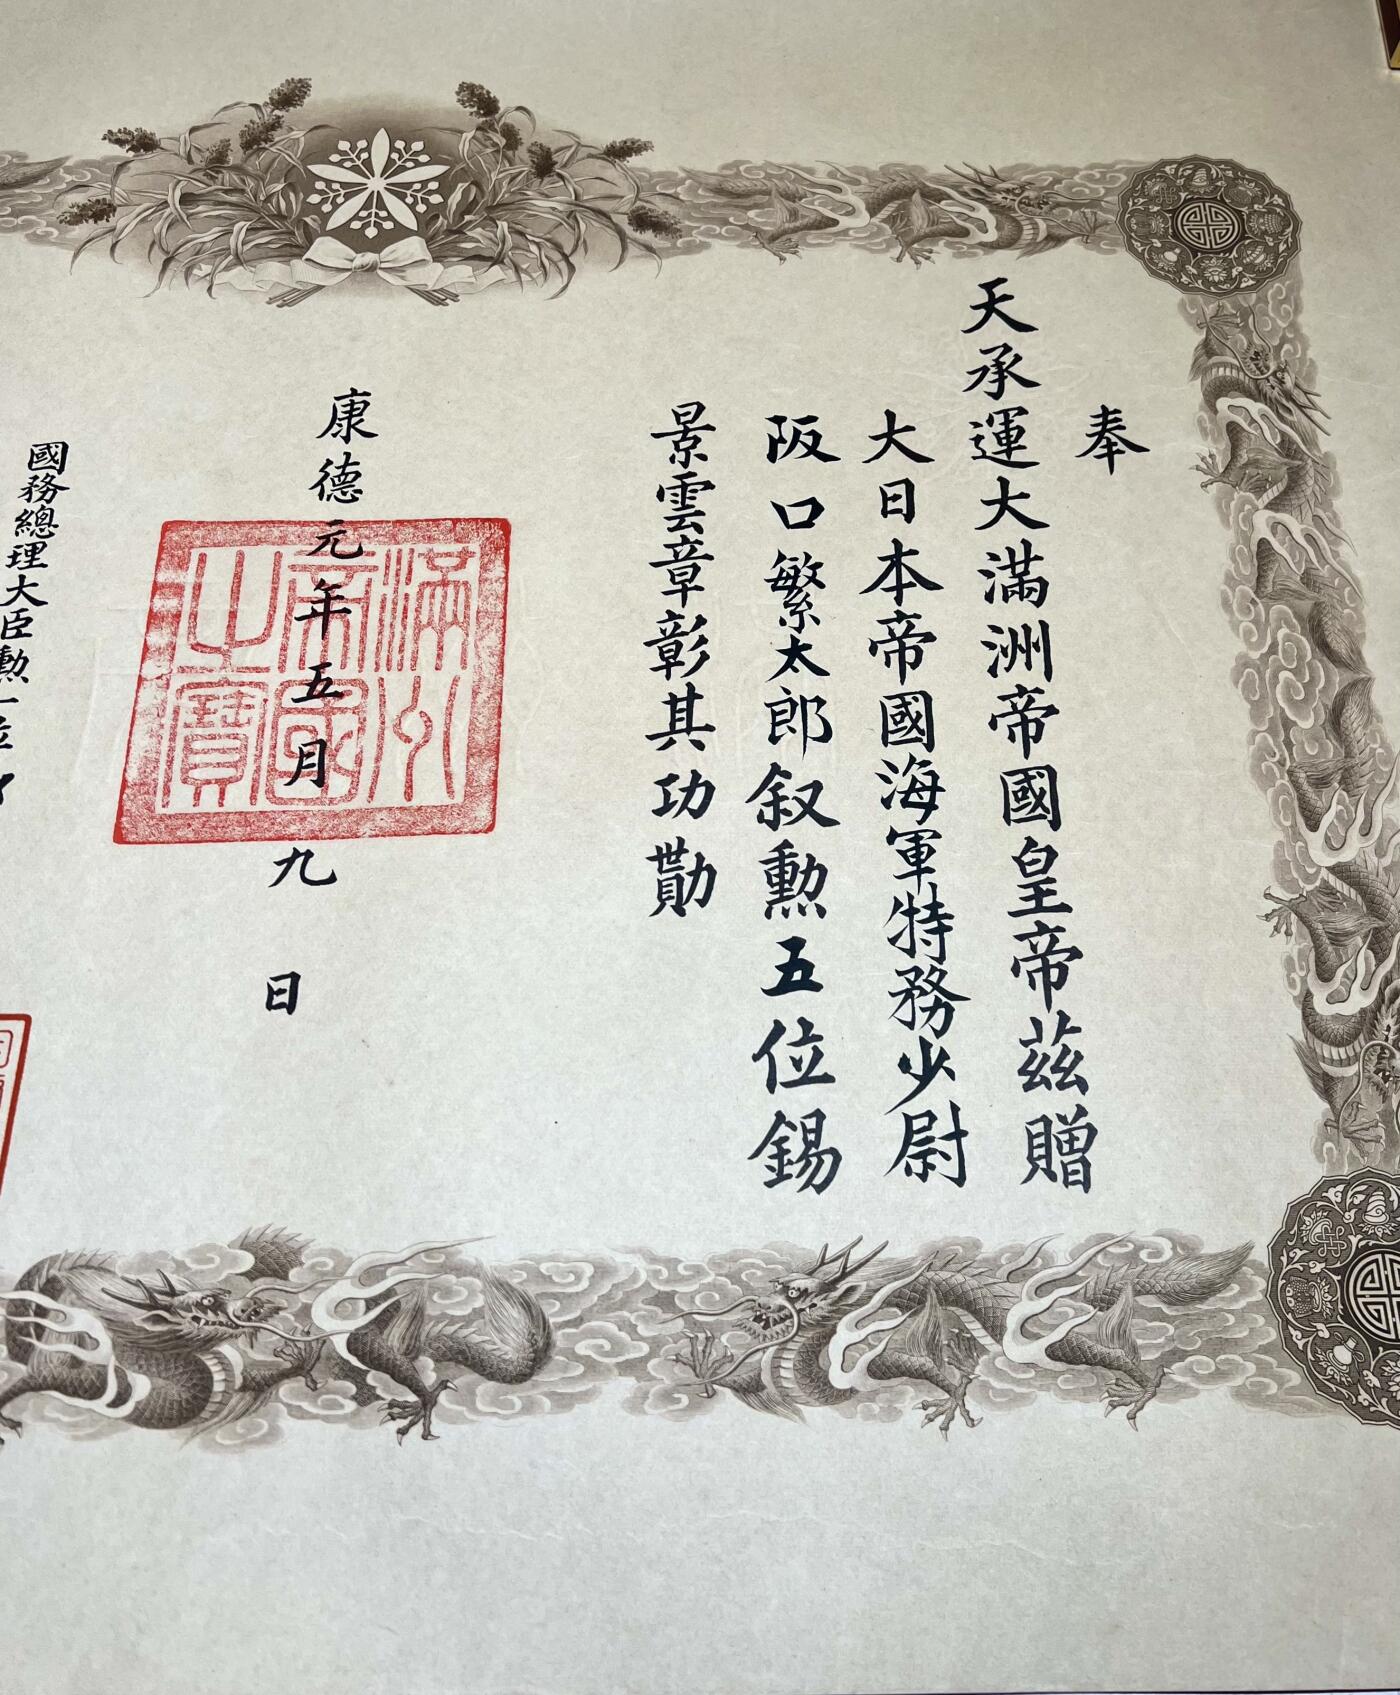 奉
天承運大滿洲帝國皇帝茲贈
大日本帝國海軍特務少尉
阪口繁太郎叙勲五位錫
景雲章彰其功勩
康德元年五月九日
滿州
帝國
之寶
國務總理大臣勲一位